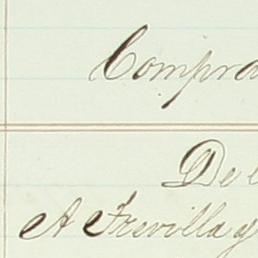 Compra
De
A Trevilla y